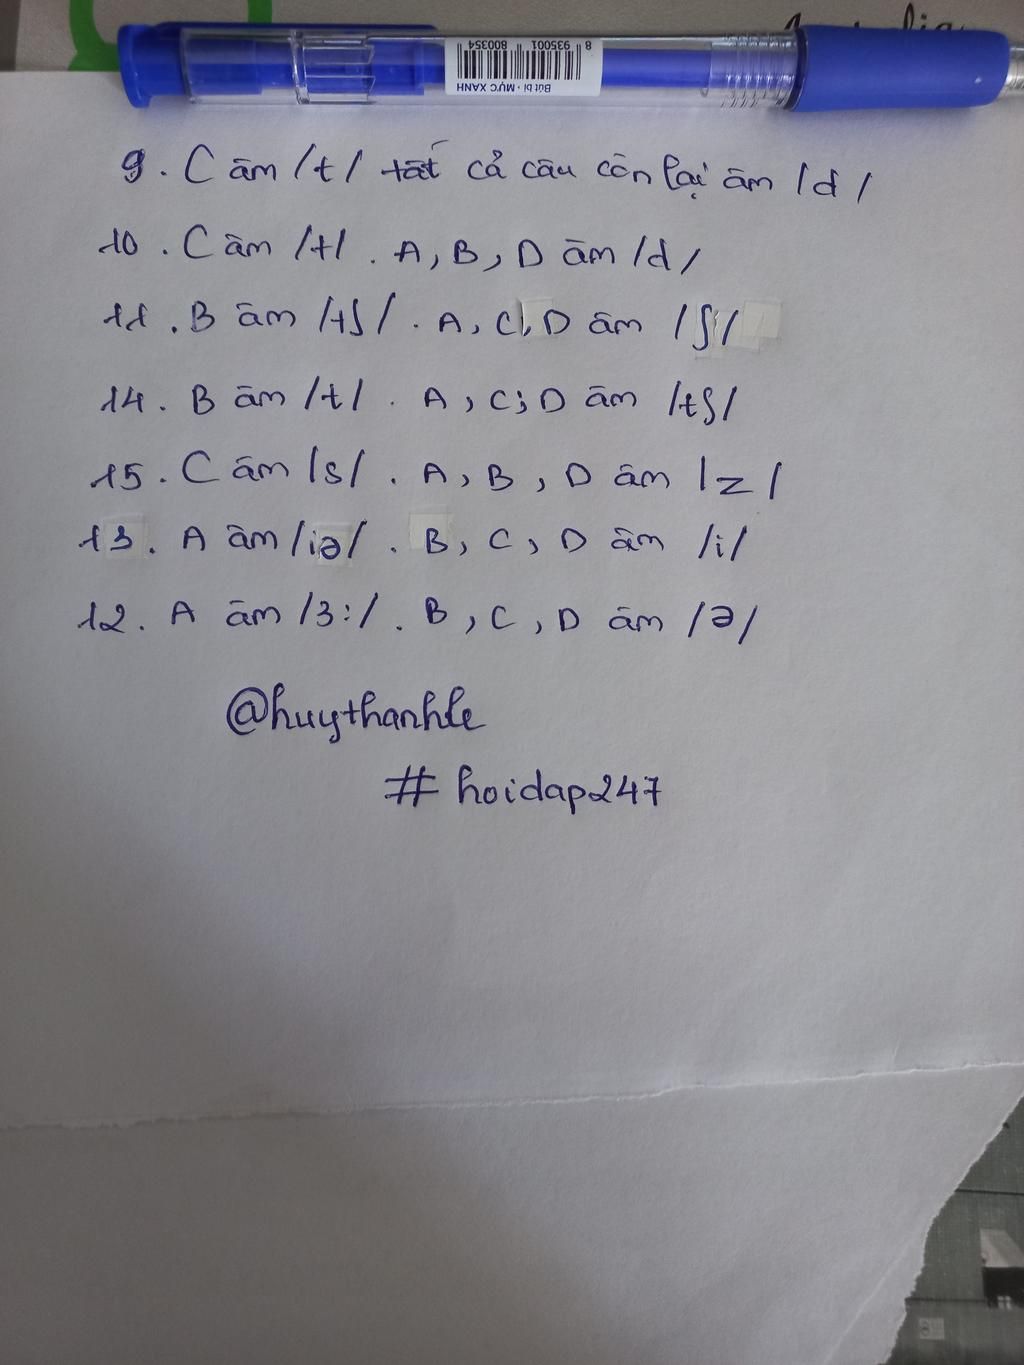 8 935001 800354
Bút bi - MỰC XANH
9. C âm /t/ tất cả câu còn lại âm /d/
10. C âm /t/. A, B, D âm /d/
11. B âm /tʃ/. A, C, D âm /ʃ/
14. B âm /t/. A, C, D âm /tʃ/
15. C âm /s/. A, B, D âm /z/
13. A âm /iə/. B, C, D âm /i/
12. A âm /3:/. B, C, D âm /ə/
@huythanhle
# hoidap247